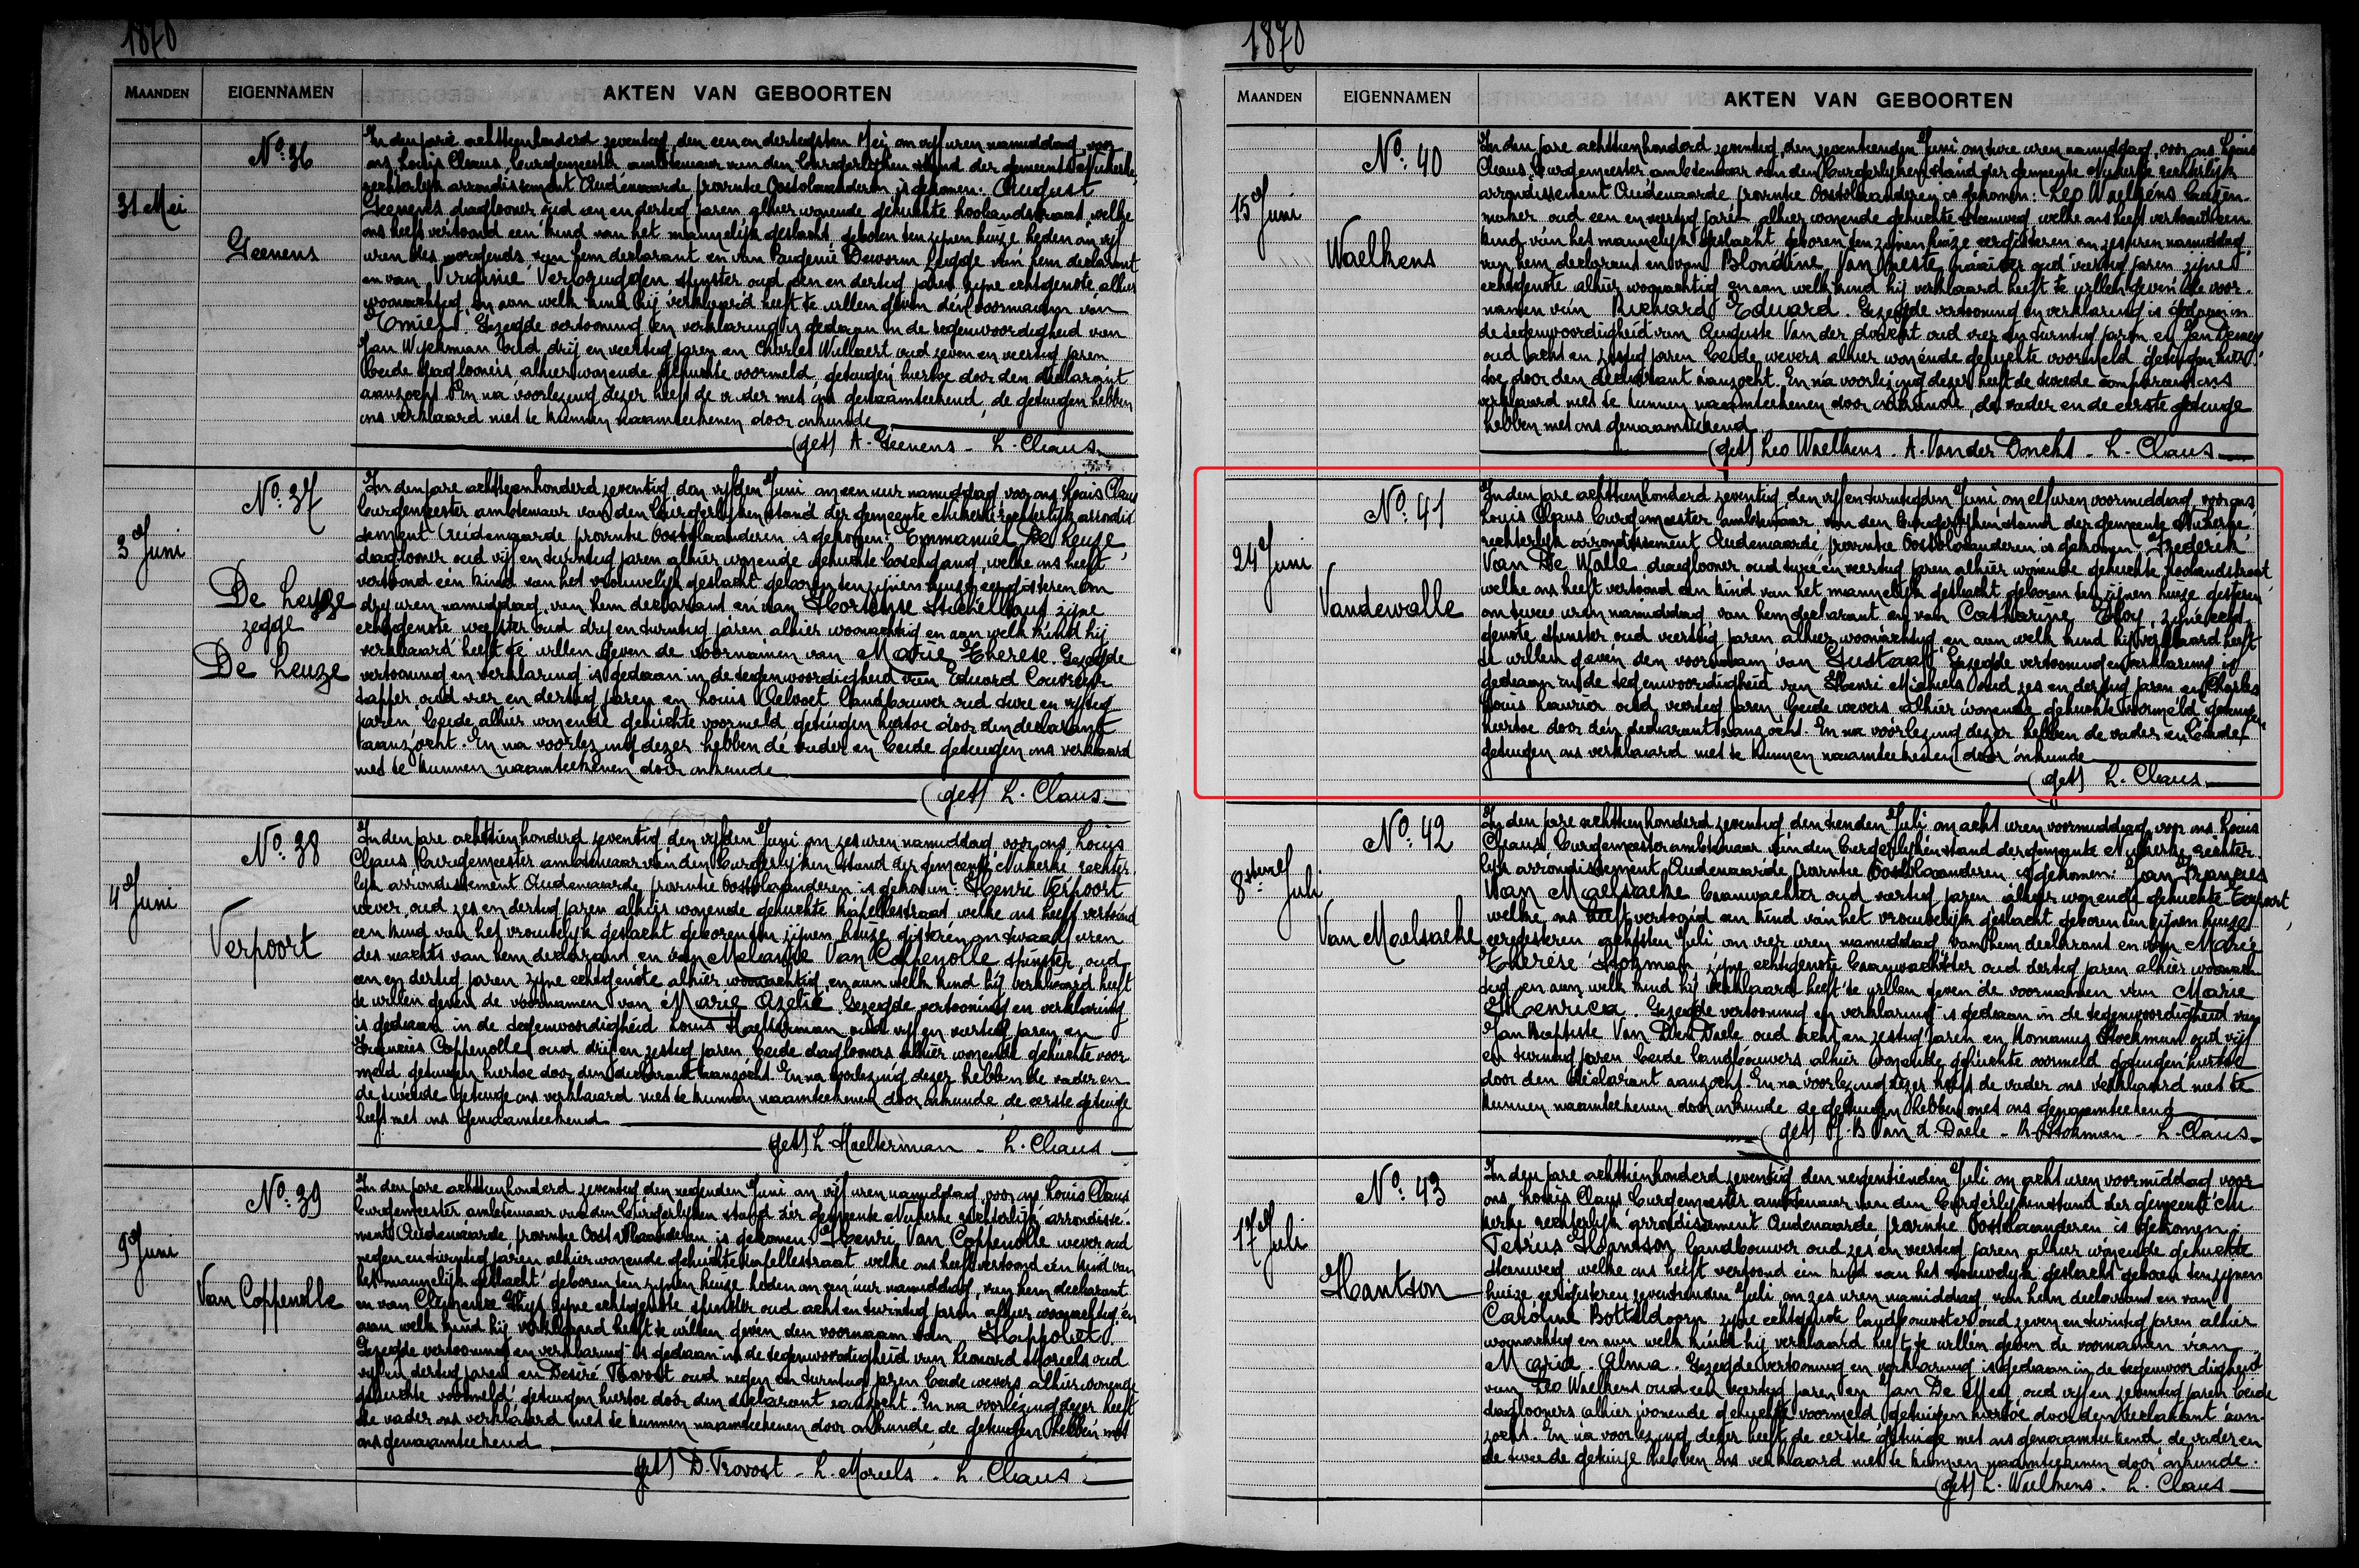 1870
MAANDEN EIGENNAMEN AKTEN VAN GEBOORTEN
No. 36
31 Mei
Geenens
In den jare achttienhonderd zeventig, den een en dertigsten Mei om vijf uren namiddag, voor
ons Louis Claus, burgemeester ambtenaar van den burgerlijken stand der gemeente Nukerke,
rechterlijk arrondissement Audenaarde, provintie Oostvlaanderen is gekomen: August
Geenens daglooner oud een en dertig jaren alhier wonende gehuchte hoolandstraat, welke
ons heeft vertoond een kind van het mannelijk geslacht, geboren ten zijnen huize heden om vijf
uren des morgends, van hem declarant en van
en van Virginie spinster oud een en dertig jaren zijne echtgenote alhier
woonachtig, en aan welk kind hij verklaard heeft te willen geven den voornaam van
Emiel. Gezegde vertooning en verklaring is gedaan in de tegenwoordigheid van
Jan Wyckman oud drij en veertig jaren en Charles Willaert oud zeven en veertig jaren
beide daglooners, alhier wonende gehuchte voormeld, getuigen hiertoe door den declarant
aanzocht. En na voorlezing dezer heeft de vader met ons genaamteekend, de getuigen hebben
ons verklaard niet te kunnen naamteekenen door onkunde
(get) A. Geenens - L. Claus
No. 37
3 Juni
De Leuze
zegge
De Leuze
In den jare achttienhonderd zeventig den vijfden Juni om een uur namiddag voor ons Louis Claus
burgemeester ambtenaar van den burgerlijken stand der gemeente Nukerke rechterlijk arrondis
sement Audenaarde provintie Oostvlaanderen is gekomen: Emmanuel De Leuze,
daglooner oud vijf en twintig jaren alhier wonende gehuchte welke ons heeft
vertoond een kind van het vrouwelijk geslacht geboren ten zijnen huize eergisteren om
drij uren namiddag, van hem declarant en van Hortense zijne
echtgenote weefster oud drij en twintig jaren, alhier woonachtig en aan welk kind hij
verklaard heeft te willen geven de voornamen van Marie Therese. Gezegde
vertooning en verklaring is gedaan in de tegenwoordigheid van Eduard Couvreur
tapper, oud vier en dertig jaren en Louis Aelvoet landbouwer oud twee en vijftig
jaren, beide alhier wonende gehuchte voormeld getuigen hiertoe door den declarant
aanzocht. En na voorlezing dezer hebben de vader en beide getuigen ons verklaard
niet te kunnen naamteekenen door onkunde
(get) L. Claus
No. 38
4 Juni
Verpoort
In den jare achttienhonderd zeventig den vijfden Juni om zes uren namiddag voor ons Louis
Claus burgemeester ambtenaar van den burgerlijken stand der gemeente Nukerke rechter
lijk arrondissement Audenaarde, provintie Oostvlaanderen is gekomen: Henri Verpoort
wever, oud zes en dertig jaren alhier wonende gehuchte kapellestraat welke ons heeft vertoond
een kind van het vrouwelijk geslacht geboren ten zijnen huize gisteren om twaalf uren
des nachts van hem declarant en van Melanie Van Coppenolle spinster, oud
een en dertig jaren zijne echtgenote alhier woonachtig, en aan welk kind hij verklaard heeft
te willen geven de voornamen van Marie Azelie. Gezegde vertooning en verklaring
is gedaan in de tegenwoordigheid Louis Haelterman oud vijf en veertig jaren en
Francies Coppenolle oud drij en zestig jaren, beide daglooners alhier wonende gehuchte voor
meld getuigen hiertoe door den declarant aanzocht. En na voorlezing dezer hebben de vader en
de tweede getuige ons verklaard niet te kunnen naamteekenen door onkunde, de eerste getuige
heeft met ons genaamteekend
(get) L. Haelterman - L. Claus
No. 39
9 Juni
Van Coppenolle
In den jare achttienhonderd zeventig den negenden Juni om vijf uren namiddag, voor ons Louis Claus
burgemeester ambtenaar van den burgerlijken stand der gemeente Nukerke rechterlijk arrondisse
ment Audenaarde, provintie Oostvlaanderen is gekomen: Henri Van Coppenolle wever oud
negen en twintig jaren alhier wonende gehuchte kapellestraat welke ons heeft vertoond een kind van
het mannelijk geslacht geboren ten zijnen huize heden om een uur namiddag, van hem declarant
en van Clemence Thijs zijne echtgenote spinster oud acht en twintig jaren alhier woonachtig en
aan welk kind hij verklaard heeft te willen geven den voornaam van Hippoliet.
Gezegde vertooning en verklaring is gedaan in de tegenwoordigheid van Leonard Morels oud
vijf en dertig jaren en Desiré Provost oud negen en twintig jaren beide wevers alhier wonende
gehuchte voormeld getuigen hiertoe door den declarant aanzocht. En na voorlezing dezer heeft
de vader ons verklaard niet te kunnen naamteekenen door onkunde, de getuigen hebben met
ons genaamteekend
(get) D. Provost - L. Morels - L. Claus
1870
MAANDEN EIGENNAMEN AKTEN VAN GEBOORTEN
No. 40
15 Juni
Waelkens
In den jare achttienhonderd zeventig, den zeventienden Juni om twee uren namiddag, voor ons Louis
Claus, burgemeester ambtenaar van den burgerlijken stand der gemeente Nukerke rechterlijk
arrondissement Audenaarde, provintie Oostvlaanderen is gekomen: Leo Waelkens
maker oud een en veertig jaren alhier wonende gehuchte steenweg, welke ons heeft vertoond een
kind van het mannelijk geslacht geboren ten zijnen huize eergisteren om zes uren namiddag
van hem declarant en van Blondine Van Neste naaister oud veertig jaren zijne
echtgenote alhier woonachtig en aan welk kind hij verklaard heeft te willen geven de voor
namen van Richard Eduard. Gezegde vertooning en verklaring is gedaan in
de tegenwoordigheid van Auguste Van der donckt oud vier en twintig jaren en Jan
oud acht en zestig jaren beide wevers alhier wonende gehuchte voormeld getuigen hier
toe door den declarant aanzocht. En na voorlezing dezer heeft de tweede comparant ons
verklaard niet te kunnen naamteekenen door onkunde, de vader en de eerste getuige
hebben met ons genaamteekend
(get) Leo Waelkens - A. Van der Donckt - L. Claus
No. 41
24 Juni
Vandewalle
In den jare achttienhonderd zeventig, den vijf en twintigsten Juni, om elf uren voormiddag, voor ons
Louis Claus burgemeester ambtenaar van den burgerlijken stand der gemeente Nukerke
rechterlijk arrondissement Audenaarde, provintie Oostvlaanderen is gekomen Frederik
Van De Walle daglooner oud twee en veertig jaren alhier wonende gehuchte hoolandstraat
welke ons heeft vertoond een kind van het mannelijk geslacht geboren ten zijnen huize gisteren
om twee uren namiddag, van hem declarant en van Catharine Thoy, zijne echt
genote spinster oud veertig jaren alhier woonachtig, en aan welk kind hij verklaard heeft
te willen geven den voornaam van Gustaaf. Gezegde vertooning en verklaring is
gedaan in de tegenwoordigheid van Henri Michiels oud zes en dertig jaren en Charles
Louis Laurier oud veertig jaren, beide wevers alhier wonende gehuchte voormeld, getuigen
hiertoe door den declarant aanzocht. En na voorlezing dezer hebben de vader en beide
getuigen ons verklaard niet te kunnen naamteekenen door onkunde
(get) L. Claus
No. 42
8sten Juli
Van Maelsaeke
In den jare achttienhonderd zeventig, den tienden Juli om acht uren voormiddag, voor ons Louis
Claus, burgemeester ambtenaar van den burgerlijken stand der gemeente Nukerke, rechter
lijk arrondissement Audenaarde, provintie Oostvlaanderen is gekomen: Jan Francies
Van Maelsaeke baanwachter oud veertig jaren alhier wonende gehuchte
welke ons heeft vertoond een kind van het vrouwelijk geslacht geboren ten zijnen huize
eergisteren achtsten Juli om vier uren namiddag van hem declarant en van Marie
Therese Stokman, zijne echtgenote baanwachtster oud dertig jaren alhier woonach
tig, en aan welk kind hij verklaard heeft te willen geven de voornamen van Marie
Henrica. Gezegde vertooning en verklaring is gedaan in de tegenwoordigheid van
Jan Baptiste Van Den Daele oud acht en zestig jaren en Romanus Stockman oud vijf
en twintig jaren beide landbouwers alhier wonende gehuchte voormeld getuigen hiertoe
door den declarant aanzocht. En na voorlezing dezer heeft de vader ons verklaard niet te
kunnen naamteekenen door onkunde de getuigen hebben met ons genaamteekend
(get) J. B Van d. Daele - R. Stokman - L. Claus
No. 43
17 Juli
Hantson
In den jare achttienhonderd zeventig den negentienden Juli om acht uren voormiddag voor
ons, Louis Claus burgemeester ambtenaar van den burgerlijken stand der gemeente Nu
kerke rechterlijk arrondissement Audenaarde, provintie Oostvlaanderen is gekomen
Petrus Hantson, landbouwer oud zes en veertig jaren alhier wonende gehuchte
steenweg, welke ons heeft vertoond een kind van het vrouwelijk geslacht geboren ten zijnen
huize eergisteren zeventienden Juli om zes uren namiddag, van hem declarant en van
Caroline Botteldoorn zijne echtgenote landbouwster oud zeven en twintig jaren alhier
woonachtig en aan welk kind hij verklaard heeft te willen geven de voornamen van
Marie Alma. Gezegde vertooning en verklaring is gedaan in de tegenwoordigheid
van Leo Waelkens oud een veertig jaren en Jan De oud vijf en zeventig jaren beide
daglooners alhier wonende gehuchte voormeld getuigen hiertoe door den declarant aan
zocht. En na voorlezing dezer heeft de eerste getuige met ons genaamteekend de vader en
de tweede getuige hebben ons verklaard niet te kunnen naamteekenen door onkunde.
(get) L. Waelkens. L. Claus